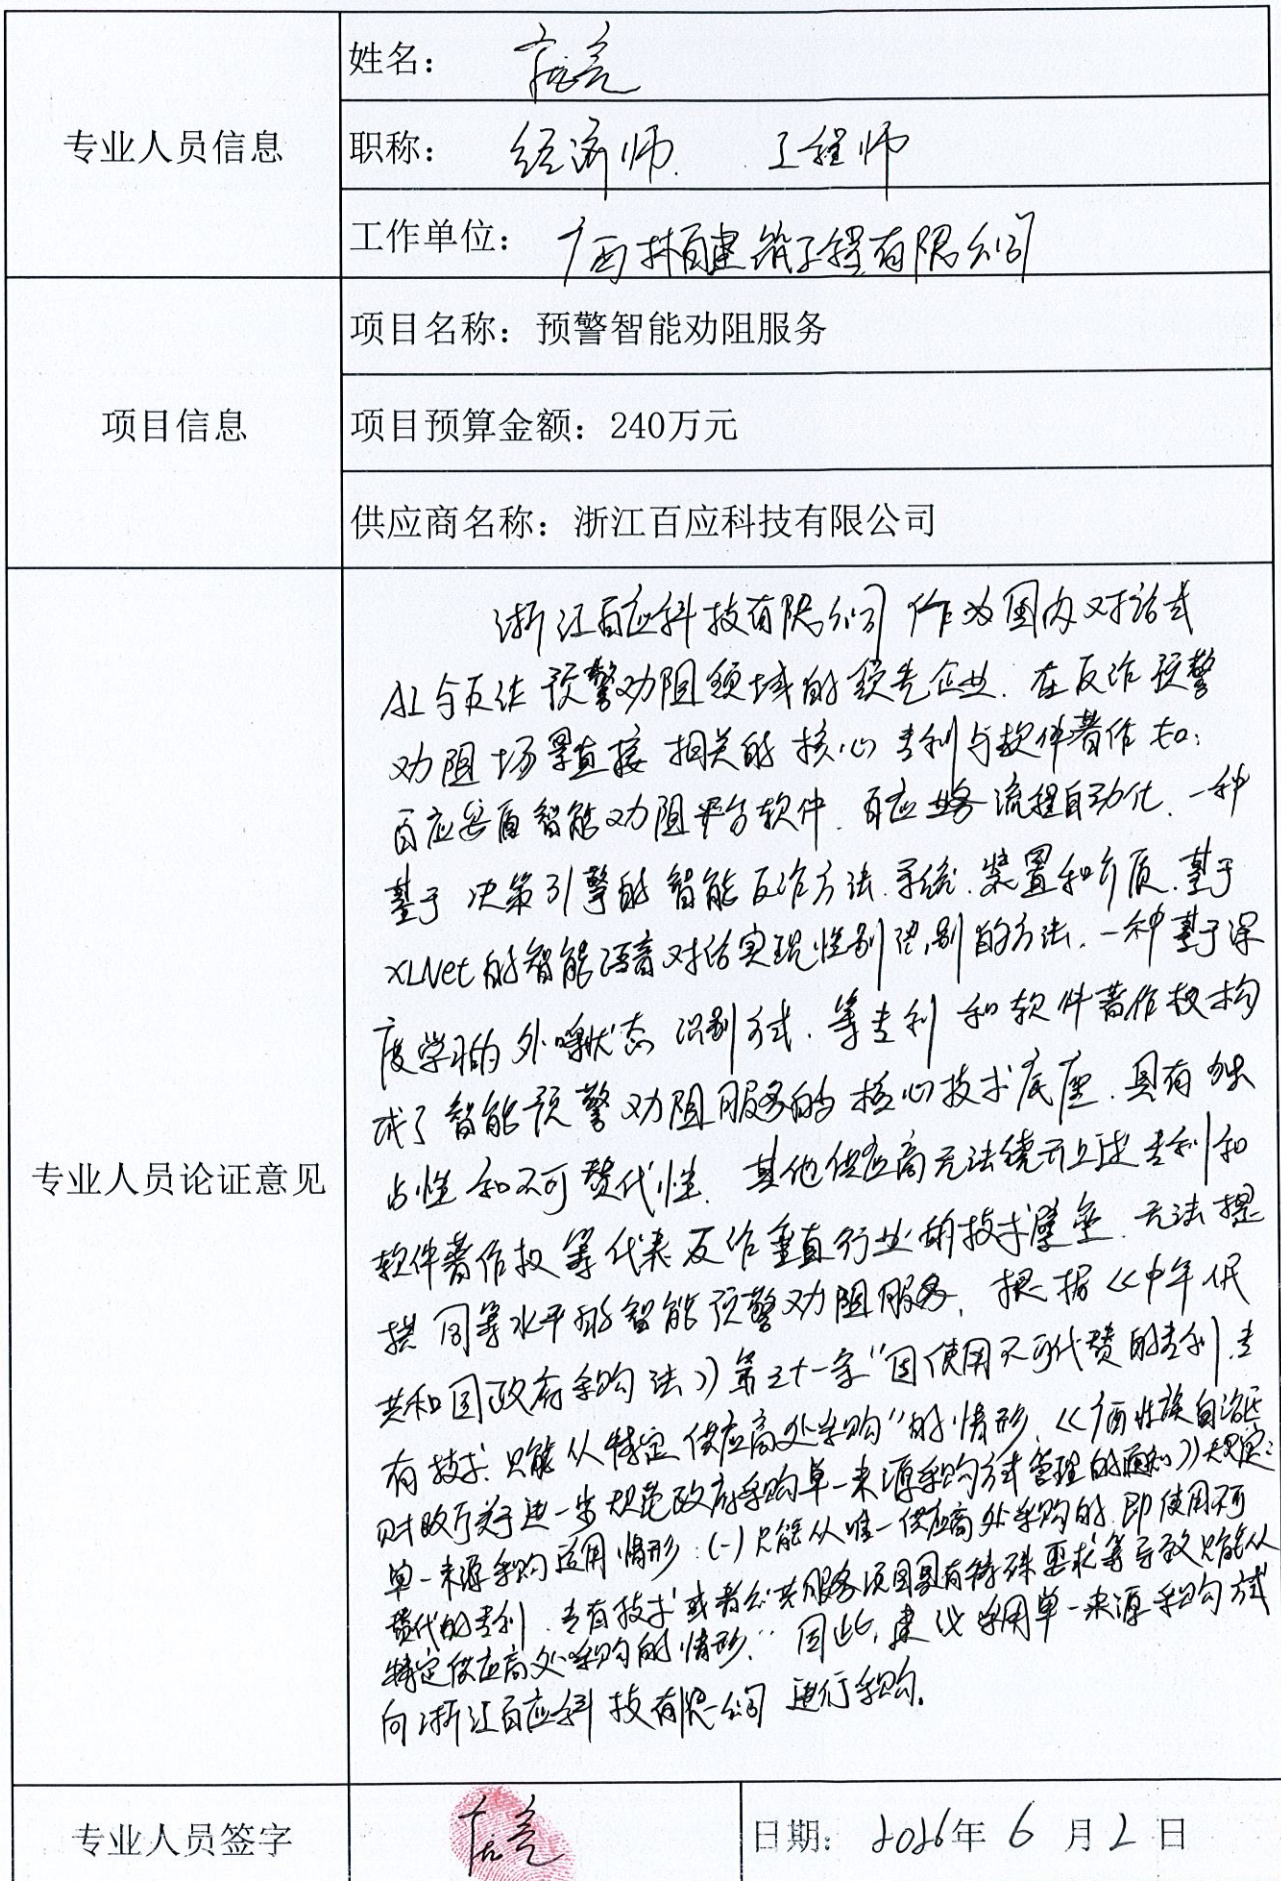 姓名：
专业人员信息
职称： 经济师. 工程师
工作单位： 广西林百建筑工程有限公司
项目名称：预警智能劝阻服务
项目信息
项目预算金额：240万元
供应商名称：浙江百应科技有限公司
专业人员论证意见
浙江百应科技有限公司作为国内对话式
AI与反诈预警劝阻领域的领先企业. 在反诈预警
劝阻场景直接相关的核心专利与软件著作如：
百应 智能劝阻平台软件. 百应业务流程自动化. 一种
基于决策引擎的智能反诈方法.系统.装置和介质.基于
XLNet的智能语音对话实现性别识别的方法.一种基于深
度学习的外呼状态识别方式.等专利和软件著作权构
成了智能预警劝阻服务的核心技术底座.具有独
占性和不可替代性. 其他供应商无法绕开上述专利和
软件著作权等代表反诈垂直行业的技术壁垒.无法提
供同等水平的智能预警劝阻服务. 根据《中华人民
共和国政府采购法》第三十一条“因使用不可代替的专利.专
有技术.只能从特定供应商处采购”的情形.《广西壮族自治区
财政厅关于进一步规范政府采购单一来源采购方式管理的通知》规定：
单一来源采购适用情形：(一)只能从唯一供应商处采购的.即使用不可
替代的专利.专有技术或者公共服务项目具有特殊要求等导致只能从
特定供应商处采购的情形.” 因此,建议采用单一来源采购方式
向浙江百应科技有限公司进行采购.
专业人员签字
日期：2026年6月2日